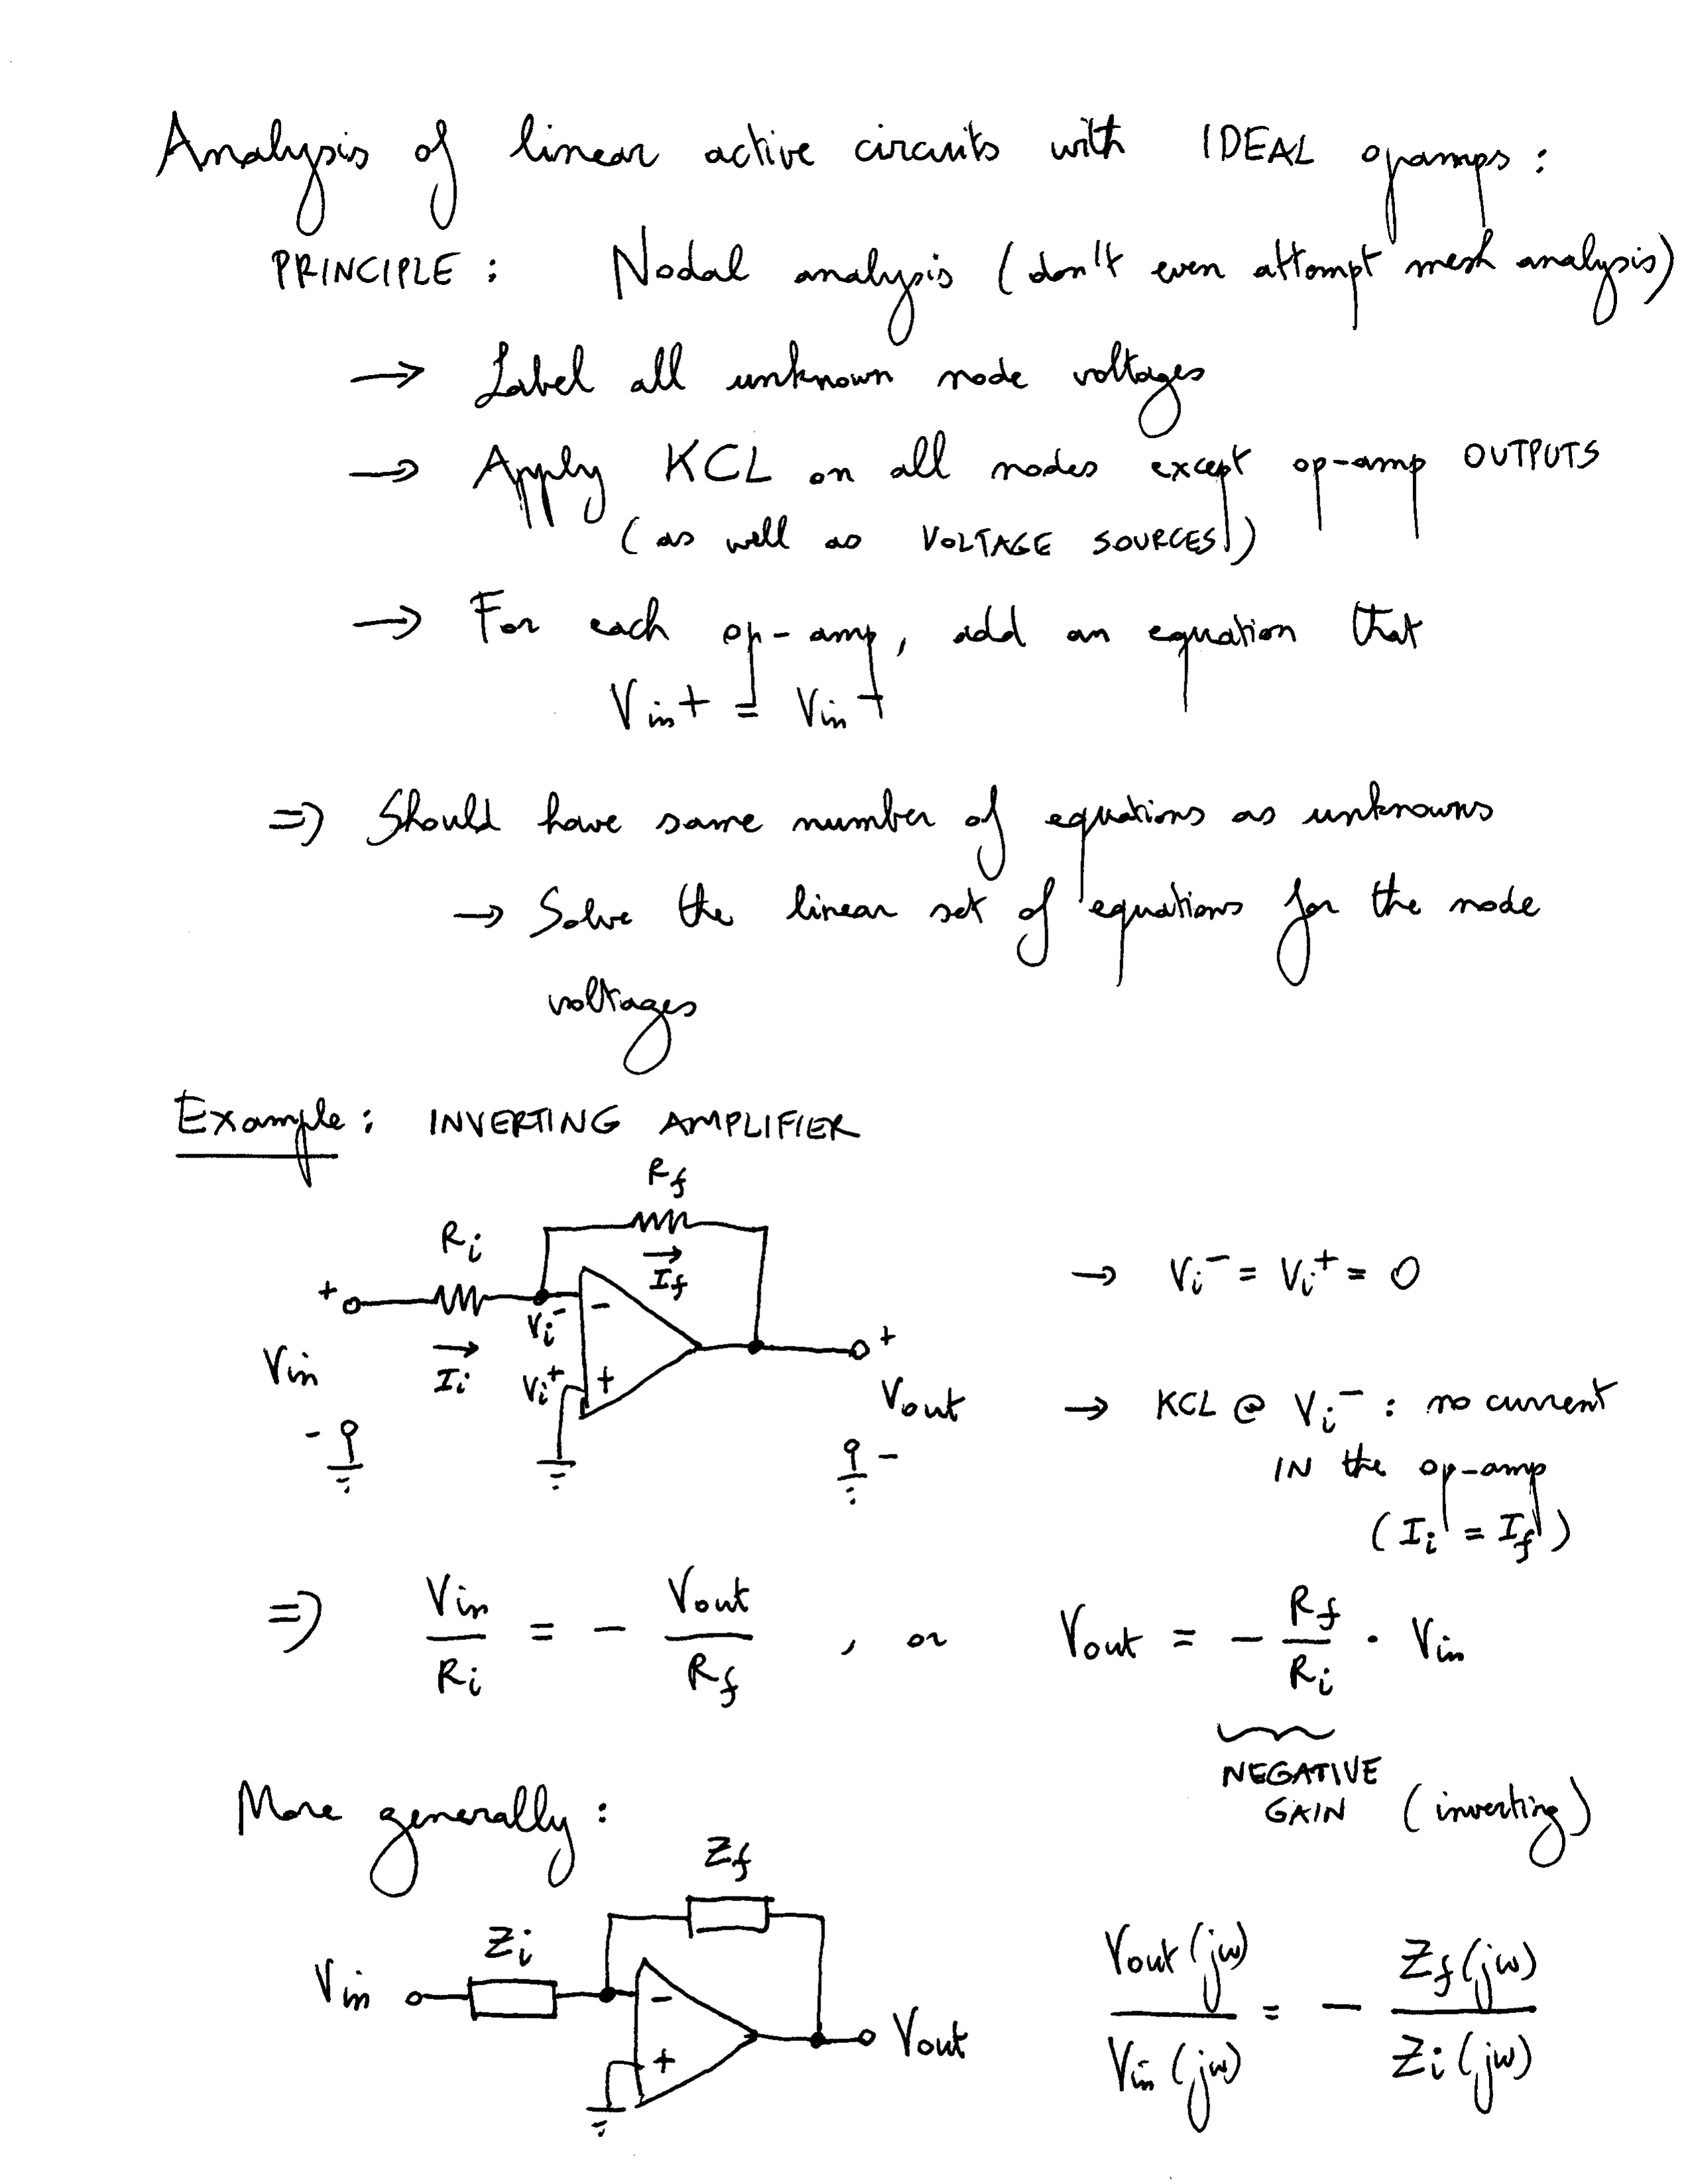 Analysis of linear active circuits with IDEAL opamps :
PRINCIPLE : Nodal analysis (don't even attempt mesh analysis)
→ Label all unknown node voltages
→ Apply KCL on all nodes except op-amp OUTPUTS
(as well as VOLTAGE SOURCES!)
→ For each op-amp, add an equation that
Vin+ = Vin-
⇒ Should have same number of equations as unknowns
→ Solve the linear set of equations for the node
voltages
Example : INVERTING AMPLIFIER
Rf
Ri
If
+
-
Vi-
→ Vi- = Vi+ = 0
Vin
Ii
Vi+
+
+
Vout
→ KCL @ Vi- : no current
IN the op-amp
(Ii = If)
-
-
⇒ Vin/Ri = - Vout/Rf , or Vout = - Rf/Ri · Vin
NEGATIVE
GAIN (inverting)
More generally :
Zf
Zi
Vin
-
+
Vout
Vout(jω)/Vin(jω) = - Zf(jω)/Zi(jω)